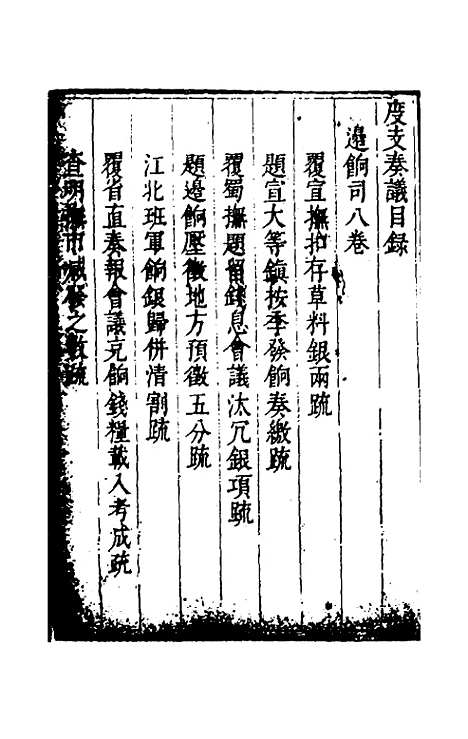 度支奏議目録
邊餉司八卷
覆宣撫扣存草料銀兩疏
題宣大等鎮按季發餉奏繳疏
覆蜀撫題留錢息會議汰冗銀項疏
題邊餉壓徵地方預徵五分疏
江北班軍餉銀歸併清割疏
覆省直奏報會議充餉錢糧載入考成疏
查明市之數疏